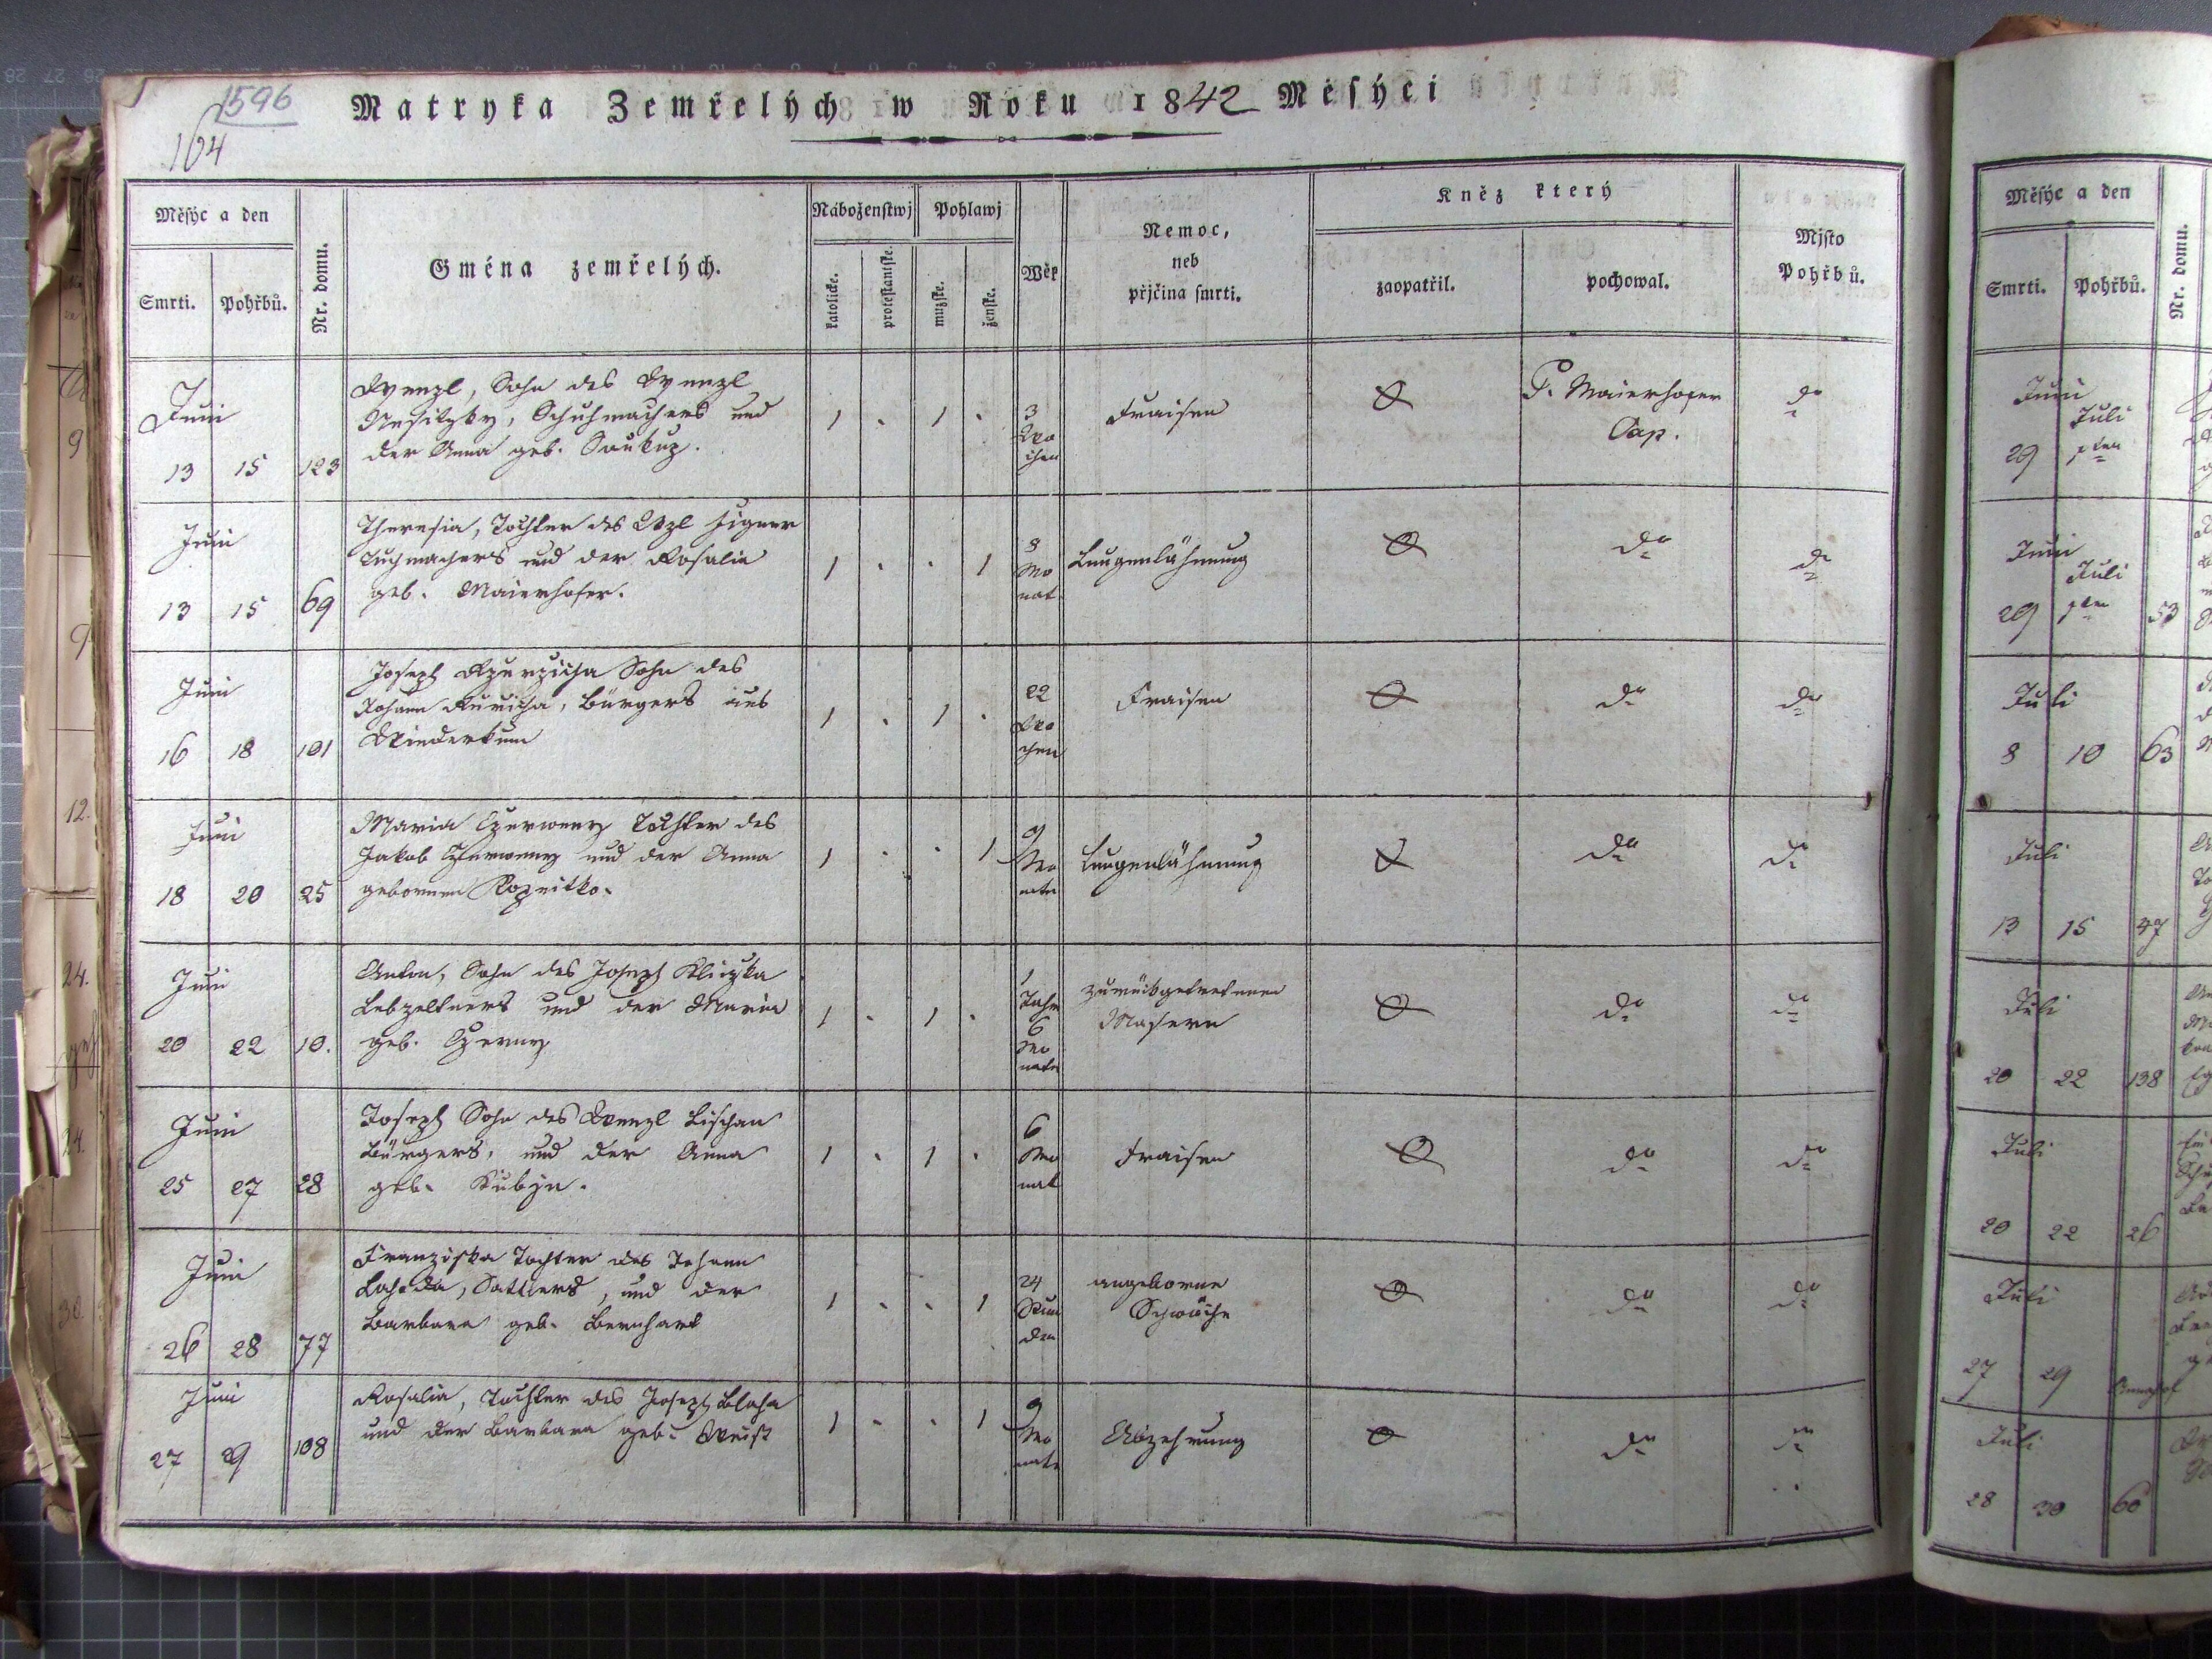 1596
164
Matryka Zemřelých w Roku 1842 Měsýci
Měsýc a den
Smrti.
Pohřbů.
Nr. domu.
Gména zemřelých.
Náboženstwj
katolické.
protestantské.
Pohlawj
mužské.
ženské.
Wěk
Nemoc,
neb
přjčina smrti.
Kněz který
zaopatřil.
pochowal.
Mjsto
Pohřbů.
Juni
13 15 123
Wenzl, Sohn des Wenzl
Nesitzky, Schuhmachers und
der Anna geb. Saukup.
1 . 1 .
3
Wo
chen
Fraisen
P. Maierhofer
Cap.
do
Juni
13 15 69
Theresia, Tochter des Wzl
Tuchmachers und der Rosalia
geb. Maierhofer.
1 . . 1
8
Mo
nat
Lungenlähmung
do
do
Juni
16 18 101
Joseph Sohn des
Johann Bürgers aus
1 . 1 .
22
Wo
chen
Fraisen
do
do
Juni
18 20 25
Maria Czerweny Tochter des
Jakob Czerweny und der Anna
gebornen
1 . . 1
9
Mo
nate
Lungenlähmung
do
do
Juni
20 22 10.
Anton, Sohn des Joseph Kliczka
Lebzeltners und der Maria
geb. Czerny
1 . 1 .
1
Jahr
6
Mo
nate
zurückgetretenen
Masern
do
do
Juni
25 27 28
Joseph Sohn des Wenzl Lischan
Bürgers, und der Anna
geb. Kubin.
1 . 1 .
6
Mo
nat
Fraisen
do
do
Juni
26 28 77
Franziska Tochter des Johann
Lahoda, Sattlers, und der
Barbara geb. Bernhart
1 . . 1
24
Stun
den
angeborne
Schwäche
do
do
Juni
27 29 108
Rosalia, Tochter des Joseph Blaha
und der Barbara geb.
1 . . 1
9
Mo
nate
Abzehrung
do
do
Měsýc a den
Smrti.
Pohřbů.
Nr. domu.
Juni
Juli
29 1ten
Juni
Juli
29 1ten 53
Juli
8 10 63
Juli
13 15 47
Juli
20 22 138
Juli
20 22 26
Juli
27 29
Juli
28 30 60